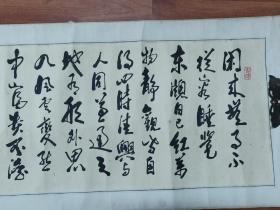 閑来無事不
從容睡覺
東窗日已紅萬
物静觀皆自
得四时佳興与
人同道通天
地有形外思
入風雲變態
中富貴不淫